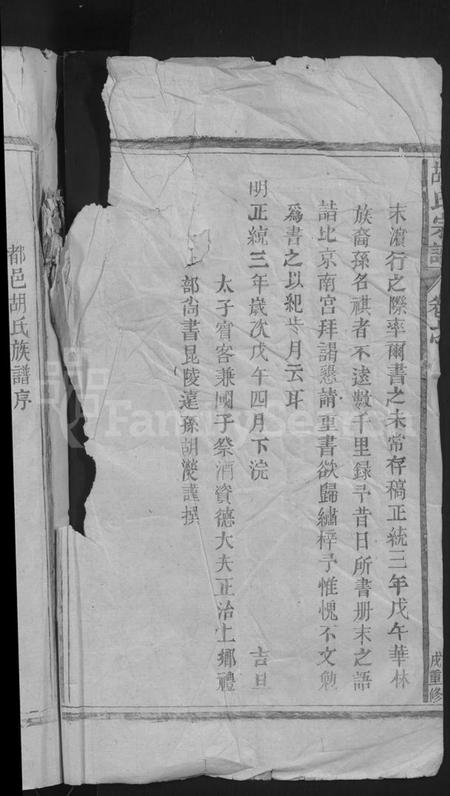 胡氏宗譜 卷
戌重修
末濵行之際率爾書之未常存稿正統三年戊午華林
族裔孫名祺者不遠數千里録予昔日所書册末之語
詣北京南宮拜謁懇請重書欲歸繡梓予惟愧不文勉
爲書之以紀其月云耳
明正統三年歲次戊午四月下浣 吉旦
太子賓客兼國子祭酒資德大夫正治上卿禮
部尚書毘陵遠孫胡濙謹撰
都邑胡氏族譜序
FamilySearch